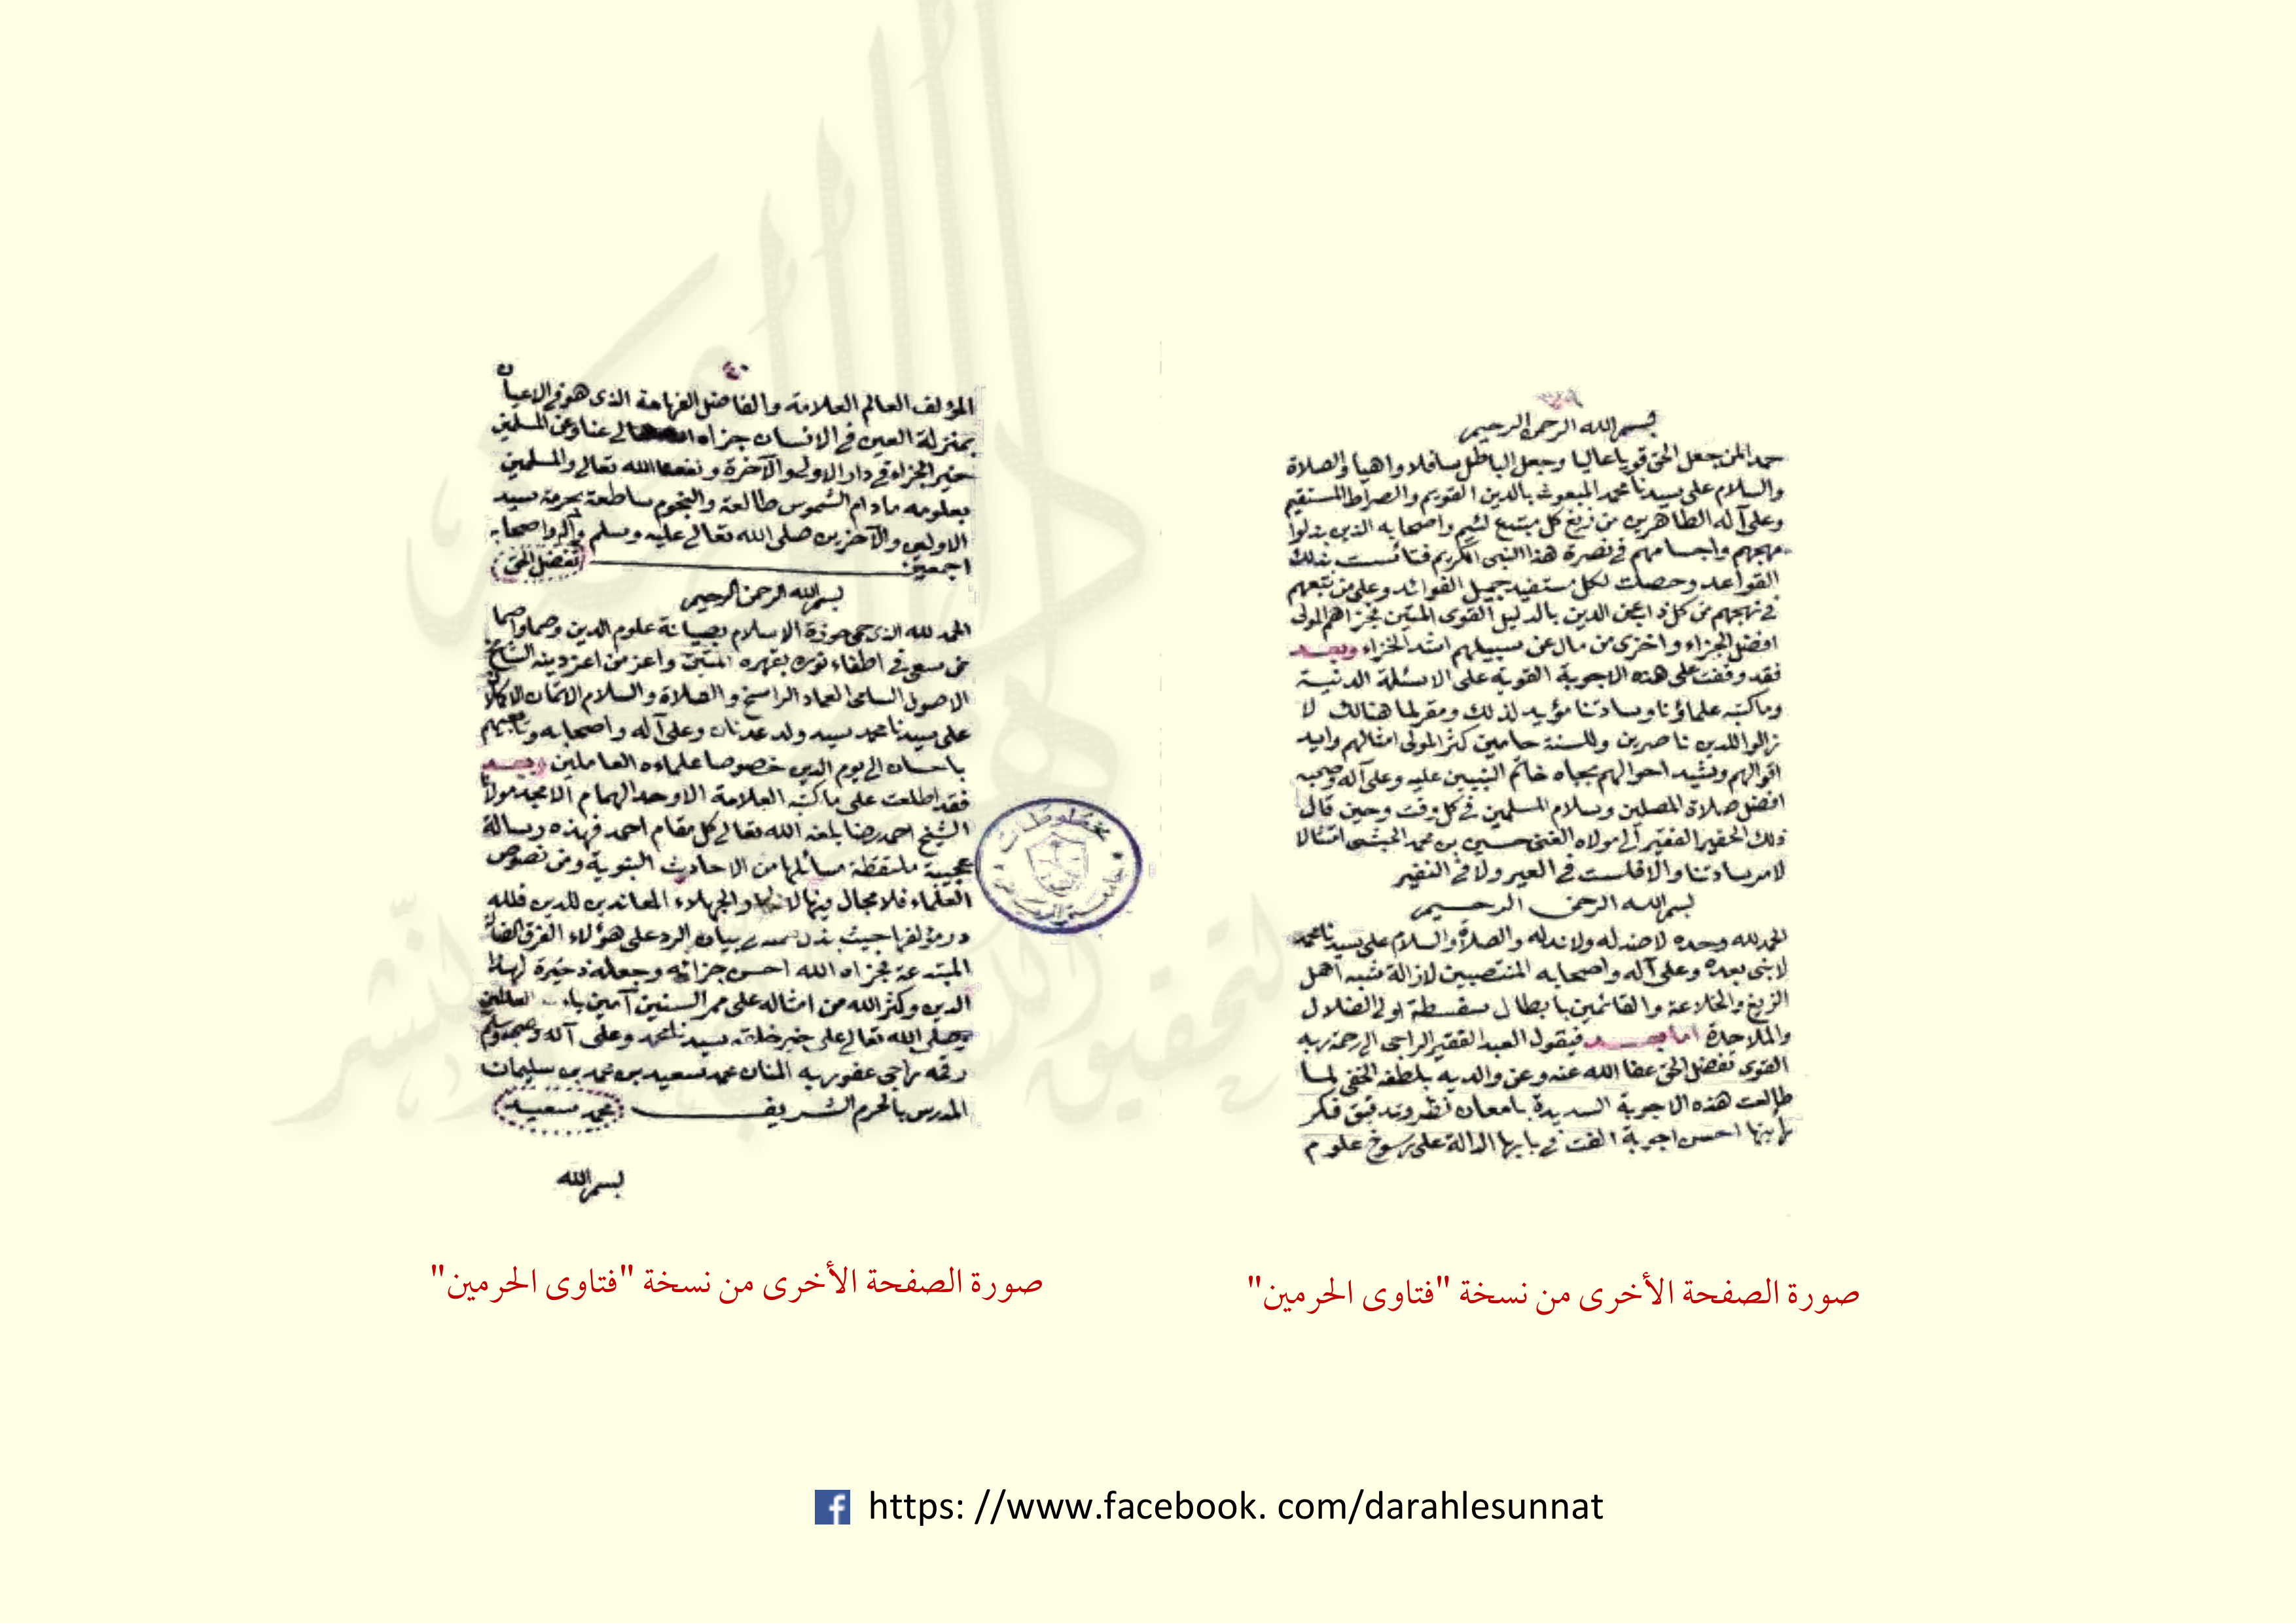 بسم الله الرحمن الرحيم
حمدا لمن جعل الحق قويا عاليا وجعل الباطل سافلا واهيا والصلاة
والسلام على سيدنا محمد المبعوث بالدين القويم والصراط المستقيم
وعلى آله الطاهرين من زيغ كل مبتدع لئيم واصحابه الذين بذلوا
مهجهم واجسامهم في نصرة هذا النبي الكريم فتأسست بذلك
القواعد وحصلت لكل مستفيد جميل الفوائد وعلى من تبعهم
في نهجهم من كل ذابّ عن الدين بالدليل القوى المتين فجزاهم المولى
افضل الجزاء واخزى من مال عن سبيلهم اشد الخزاء وبعد
فقد وقفت على هذه الاجوبة القوية على الاسئلة الدنية
وما كتبه علماؤنا وسادتنا مؤيد لذلك ومقرلما هنالك لا
زالوا للدين ناصرين وللسنة حامين كثر المولى امثالهم وايد
اقوالهم وشيد احوالهم بجاه خاتم النبيين عليه وعلى آله وصحبه
افضل صلاة المصلين وسلام المسلمين في كل وقت وحين قال
ذلك الحقير الفقير الى مولاه الغنى حسين بن محمد الحبشى امتثالا
لامر سادتنا والا فلست في العير ولا في النفير
بسم الله الرحمن الرحيم
الحمد لله وحده لا ضد له ولا ند له والصلاة والسلام على سيدنا محمد
لا نبى بعده وعلى آله واصحابه المنتصبين لازالة شبه اهل
الزيغ والخلاعة والقائمين بابطال سفسطة اولى الضلال
والملاحدة اما بعد فيقول العبد الفقير الراجى الى رحمة ربه
القوى تفضل الحق عفا الله عنه وعن والديه بلطفه الخفى لما
طالعت هذه الاجوبة السديدة بامعان نظر وتدقيق فكر
رأيتها احسن اجوبة الفت في بابها الدالة على رسوخ علوم
صورة الصفحة الأخرى من نسخة "فتاوى الحرمين"
٤٠
المؤلف العالم العلامة والفاضل الفهامة الذى هو في الاعيان
بمنزلة العين في الانسان جزاه الله تعالى عنا وعن المسلمين
خير الجزاء في دار الاولى والآخرة ونفعنا الله تعالى والمسلمين
بعلومه مادام الشموس طالعة والنجوم ساطعة بحرمة سيد
الاولين والآخرين صلى الله تعالى عليه وسلم وآله واصحابه
اجمعين تفضل الحق
بسم الله الرحمن الرحيم
الحمد لله الذى حمى حوزة الاسلام بصيانة علوم الدين وحماواصما
من سعى في اطفاء نوره بقهره المتين واعز من اعز دينه الشامخ
الاصول السامى العماد الراسخ والصلاة والسلام الاتمان الاكملان
على سيدنا محمد سيد ولد عدنان وعلى آله واصحابه وتابعيهم
باحسان الى يوم الدين خصوصا علماءه العاملين وبعد
فقد اطلعت على ما كتبه العلامة الاوحد الهمام الامجد مولانا
الشيخ احمد رضا بلغه الله تعالى كل مقام احمد فهذه رسالة
عجيبة ملتقطة مسائلها من الاحاديث النبوية ومن نصوص
العلماء فلا مجال فيها والجهلاء المعاندين للدين فلله
در مؤلفها حيث بذل بيان الرد على هؤلاء الفرق الضالة
المبتدعة فجزاه الله احسن جزائه وجعله ذخيرة لهذا
الدين وكثر الله من امثاله على ممر السنين آمين
وصلى الله تعالى على خير خلقه سيدنا محمد وعلى آله وصحبه وسلم
رقمه راجى عفو ربه المنان محمد سعيد بن محمد بن سليمان
المدرس بالحرم الشريف محمد سعيد
بسم الله
صورة الصفحة الأخرى من نسخة "فتاوى الحرمين"
https: //www.facebook. com/darahlesunnat